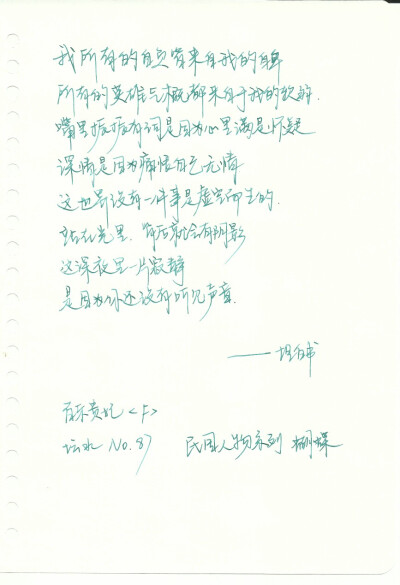 我所有的自负皆来自我的自卑
所有的英雄气概都来自于我的软弱.
嘴里振振有词是因为心里满是怀疑
深情是因为痛恨自己无情
这世界没有一件事是虚空而生的.
站在光里,背后就会有阴影
这深夜里一片寂静
是因为你还没有听见声音.
——坦白书
百乐贵妃<F>
坛水 No.87 民国人物系列 蝴蝶